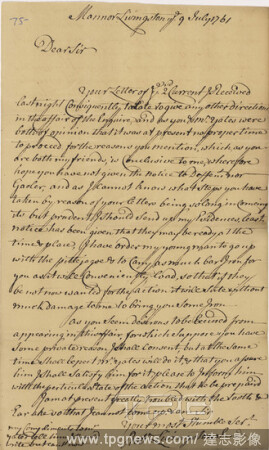 75
Mannor Livingston ye 9 July 1761
Dear Sir
Your Letter of ye 2d Current I Received
last night Consiquently to late to give any other direction
in the affair of the Enquire, and as you & Mr. Yates were
both of opinion that it was at present no proper time
to proceed for the reasons you mention, which as you
are both my friends, is Conclusive to me, wherefore
hope you have not given the notice to
and as I cannot know what steps you have
taken by reason of your Letters being so long in coming
its but prudent I should send up my Evidences, least
notice has been given that they may be ready at the
time & place, I have order my young man to go up
with the pittijager & to Carry as much bar Iron for
you as it will Conveniently Load, so that if they
be not now wanted for the action it will be with
much damage to him to bring you some Iron
As you seem desirous to be Excused from
appearing in this affair for
some private reason I shall Consent, but at the same
time shall Expect Mr. Yates will do it & that you assure
him I shall satisfy him for it, please to Inform him
with the state of the action that he be prepared
I am at present greatly troubled with the Teeth &
Ear ake so that I can not
Your most Humble Ser.t
my Compliments to
www.tpgnews.com/
达志影像